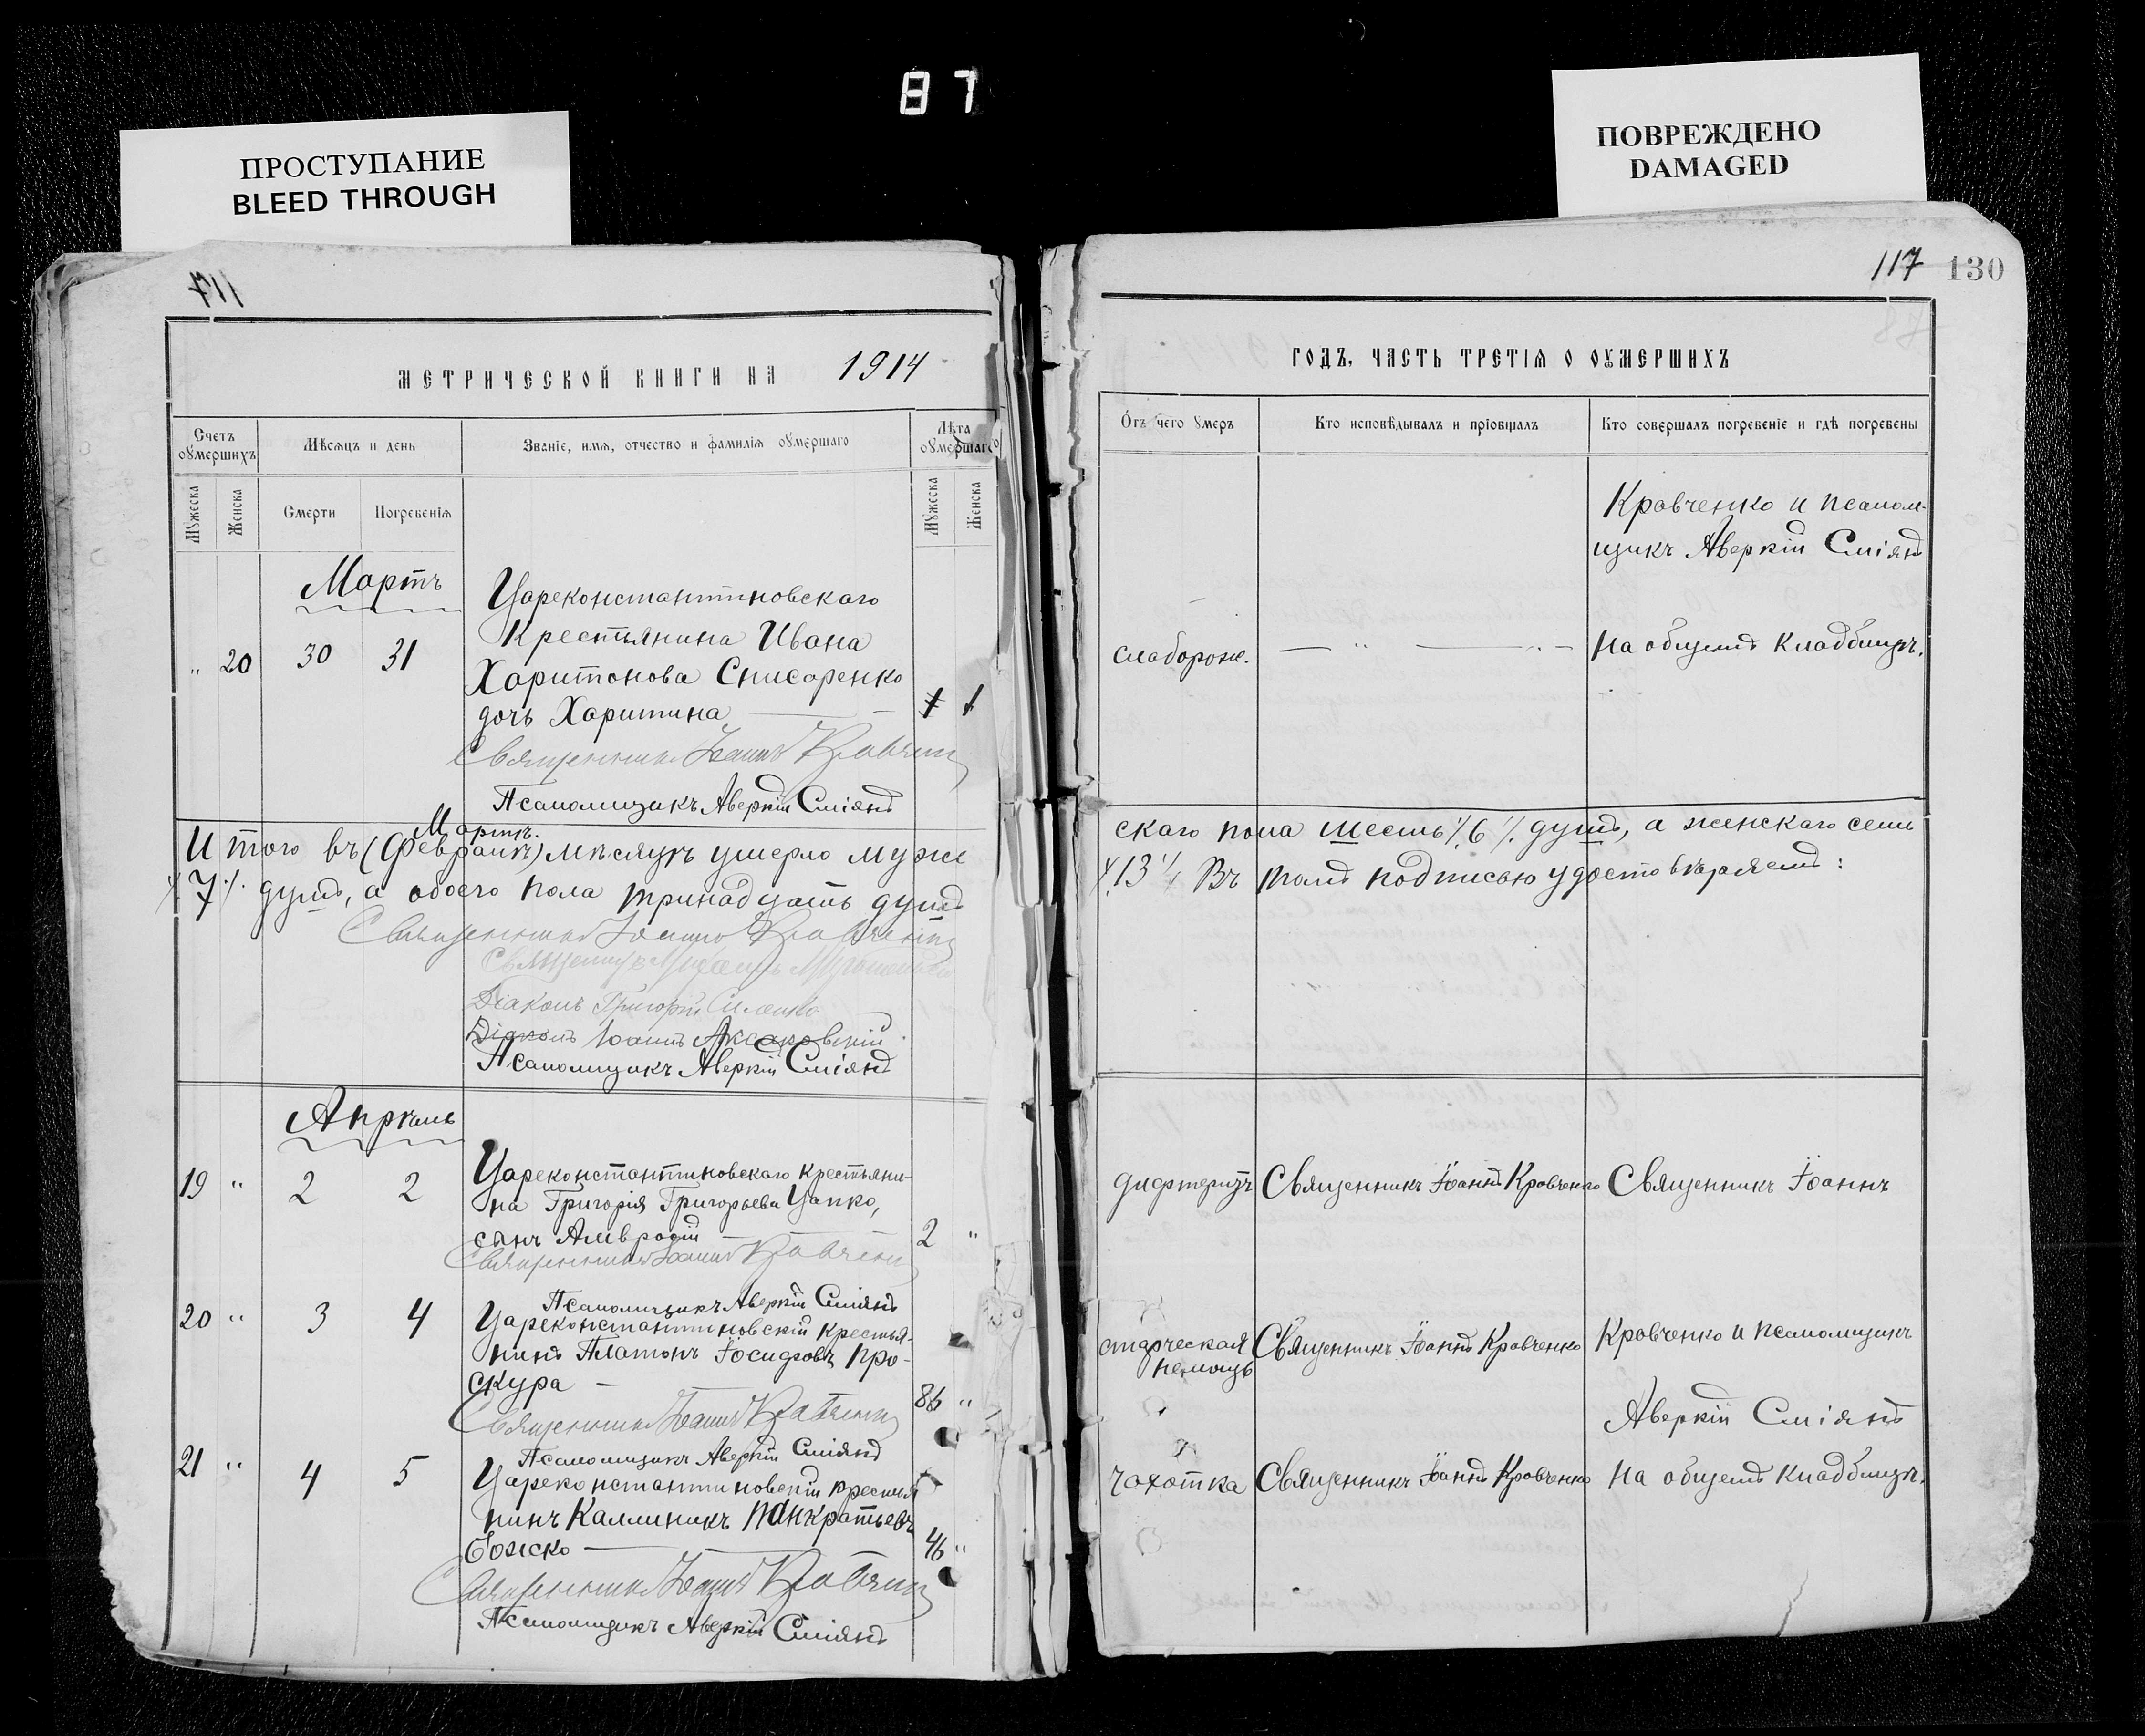 87
ПРОСТУПАНИЕ
BLEED THROUGH
ПОВРЕЖДЕНО
DAMAGED
117
117 130
МЕТРИЧЕСКОЙ КНИГИ НА 1914
ГОДЪ, ЧАСТЬ ТРЕТІЯ О ОУМЕРШИХЪ
Счетъ оумершихъ
Мѣсяцъ и день
Званіе, имя, отчество и фамилія оумершаго
Лѣта оумершаго
Мужеска
Женска
Смерти
Погребенія
Мужеска
Женска
Отъ чего умеръ
Кто исповѣдывалъ и пріобщалъ
Кто совершалъ погребеніе и гдѣ погребены
Мартъ
„ 20 30 31
Цареконстантиновскаго
Крестьянина Ивана
Харитонова Снисаренко
дочь Харитина — 1 1
Священникъ Іоаннъ Кравченко
Псаломщикъ Аверкій Сміянъ
слаборож.
— „ — „ —
Кравченко и псалом-
щикъ Аверкій Сміянъ
на общемъ кладбищѣ.
Мартѣ.
Итого въ (Февралѣ) мѣсяцѣ умерло муже
скаго пола шесть ⁒ 6 ⁒ душъ, а женскаго семь
⁒ 7 ⁒ душъ, а обоего пола тринадцать душъ
⁒ 13 ⁒ Въ томъ подписью удостовѣряемъ:
Священникъ Іоаннъ Кравченко
Священникъ
Діаконъ Григорій
Діаконъ Іоаннъ
Псаломщикъ Аверкій Сміянъ
Апрѣль
19 „ 2 2
Цареконстантиновскаго крестьяни-
на Григорія Григорьева Цапко,
сынъ Амвросій — 2 „
Священникъ Іоаннъ Кравченко
Псаломщикъ Аверкій Сміянъ
дифтеритъ
Священникъ Іоаннъ Кравченко
Священникъ Іоаннъ
20 „ 3 4
Цареконстантиновскій крестья-
нинъ Платонъ Іосифовъ Про-
скура — 86 „
Священникъ Іоаннъ Кравченко
Псаломщикъ Аверкій Сміянъ
старческая
немощь
Священникъ Іоаннъ Кравченко
Кравченко и псаломщикъ
Аверкій Сміянъ
21 „ 4 5
Цареконстантиновскій крестья
нинъ Каллиникъ Панкратьевъ
Божко — 46 „
Священникъ Іоаннъ Кравченко
Псаломщикъ Аверкій Сміянъ
чахотка
Священникъ Іоаннъ Кравченко
на общемъ кладбищѣ.